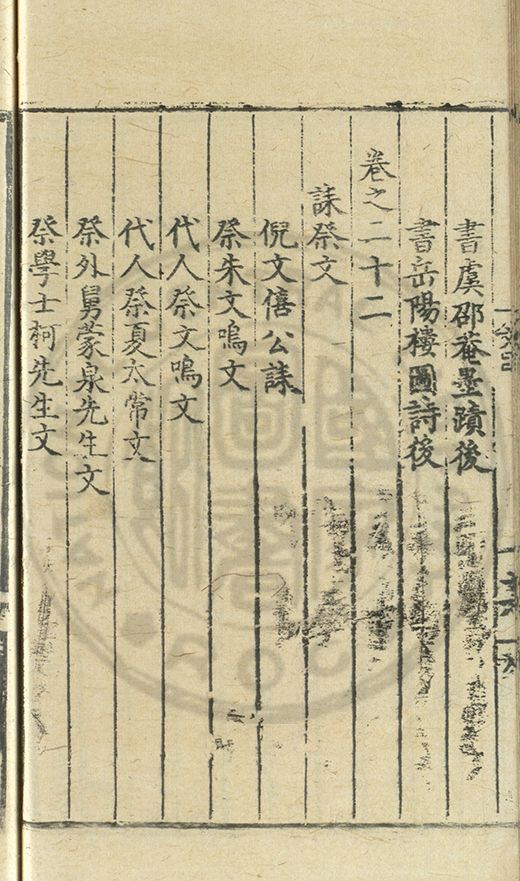 書虞邵菴墨蹟後
書岳陽樓圖詩後
卷之二十二
誄祭文
倪文僖公誄
祭朱文鳴文
代人祭文鳴文
代人祭夏太常文
祭外舅蒙泉先生文
祭學士柯先生文